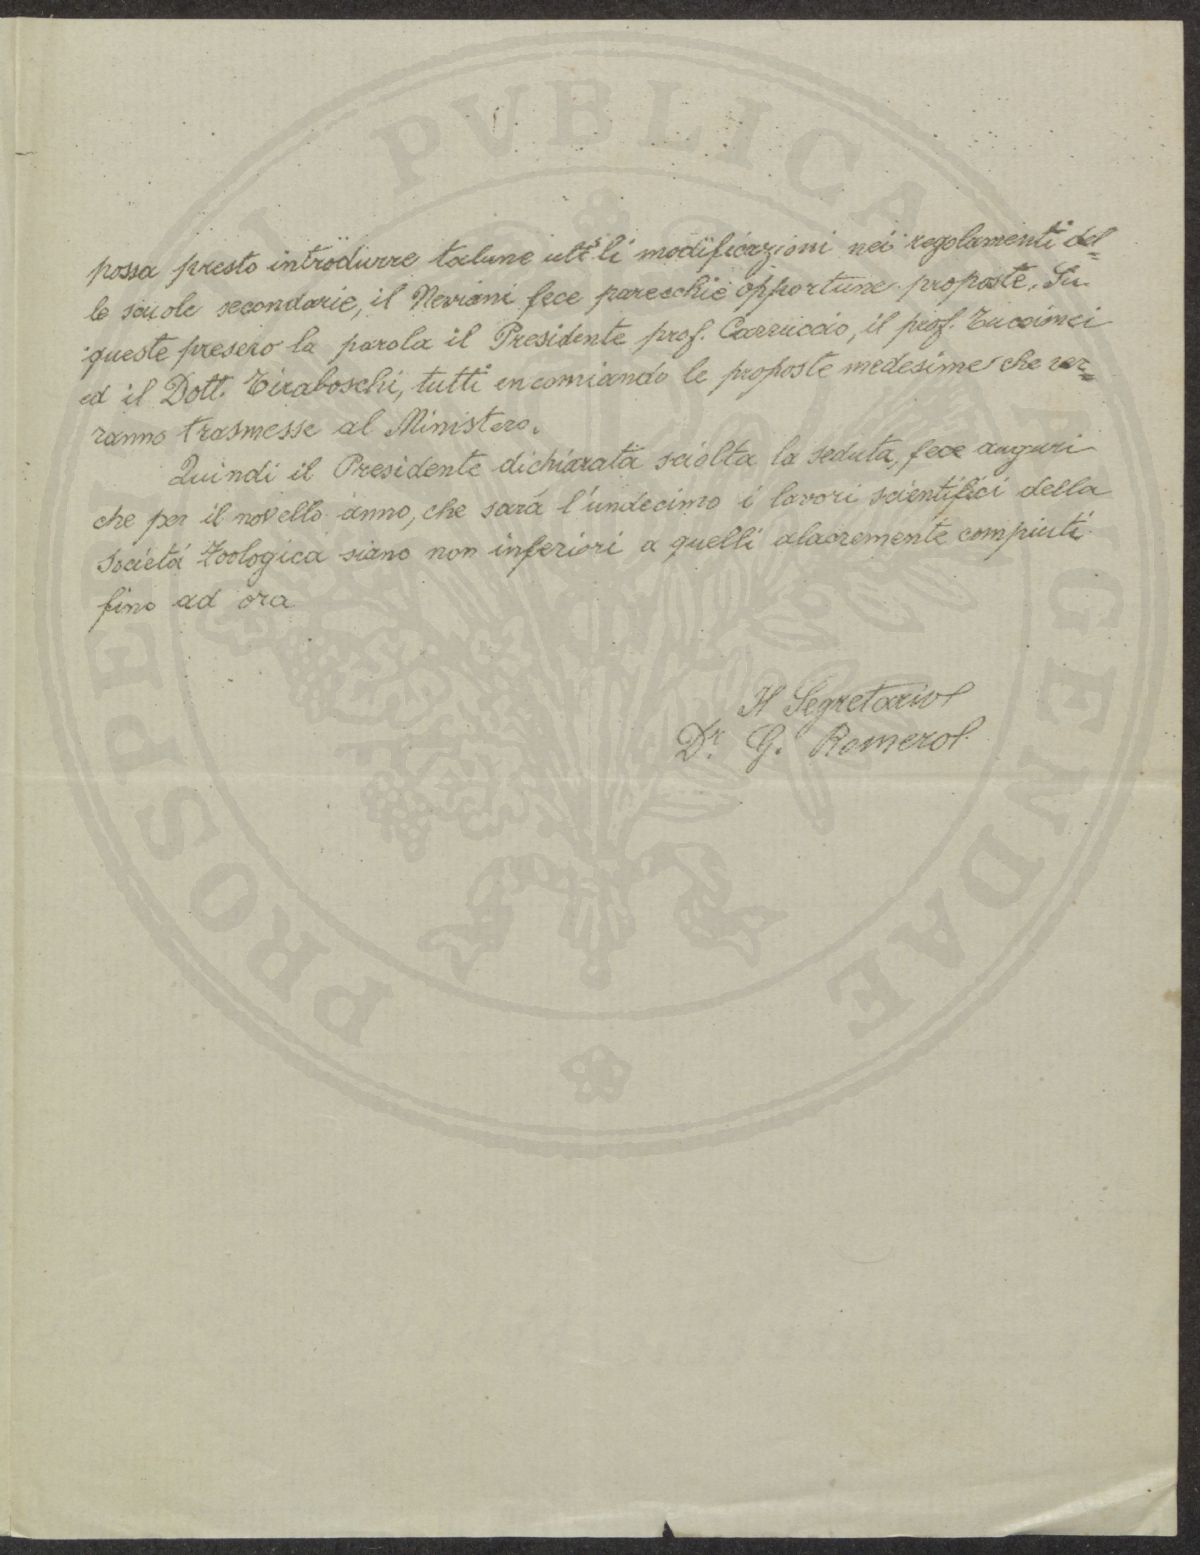 possa presto introdurre talune utili modificazioni nei regolamenti del=
le scuole secondarie, il Neviani fece parecchie opportune proposte. Su
queste presero la parola il Presidente prof. Carruccio, il prof. Tuccimei
ed il Dott. Tiraboschi, tutti encomiando le proposte medesime che ver=
ranno trasmesse al Ministero.
Quindi il Presidente dichiarata sciolta la seduta, fece auguri
che per il novello anno, che sará l'undecimo i lavori scientifici della
Societá Zoologica siano non inferiori a quelli alacremente compiuti
fino ad ora
Il Segretario
Dr. G. Romero
PROSPERITATI PVBLICAE AVGENDAE